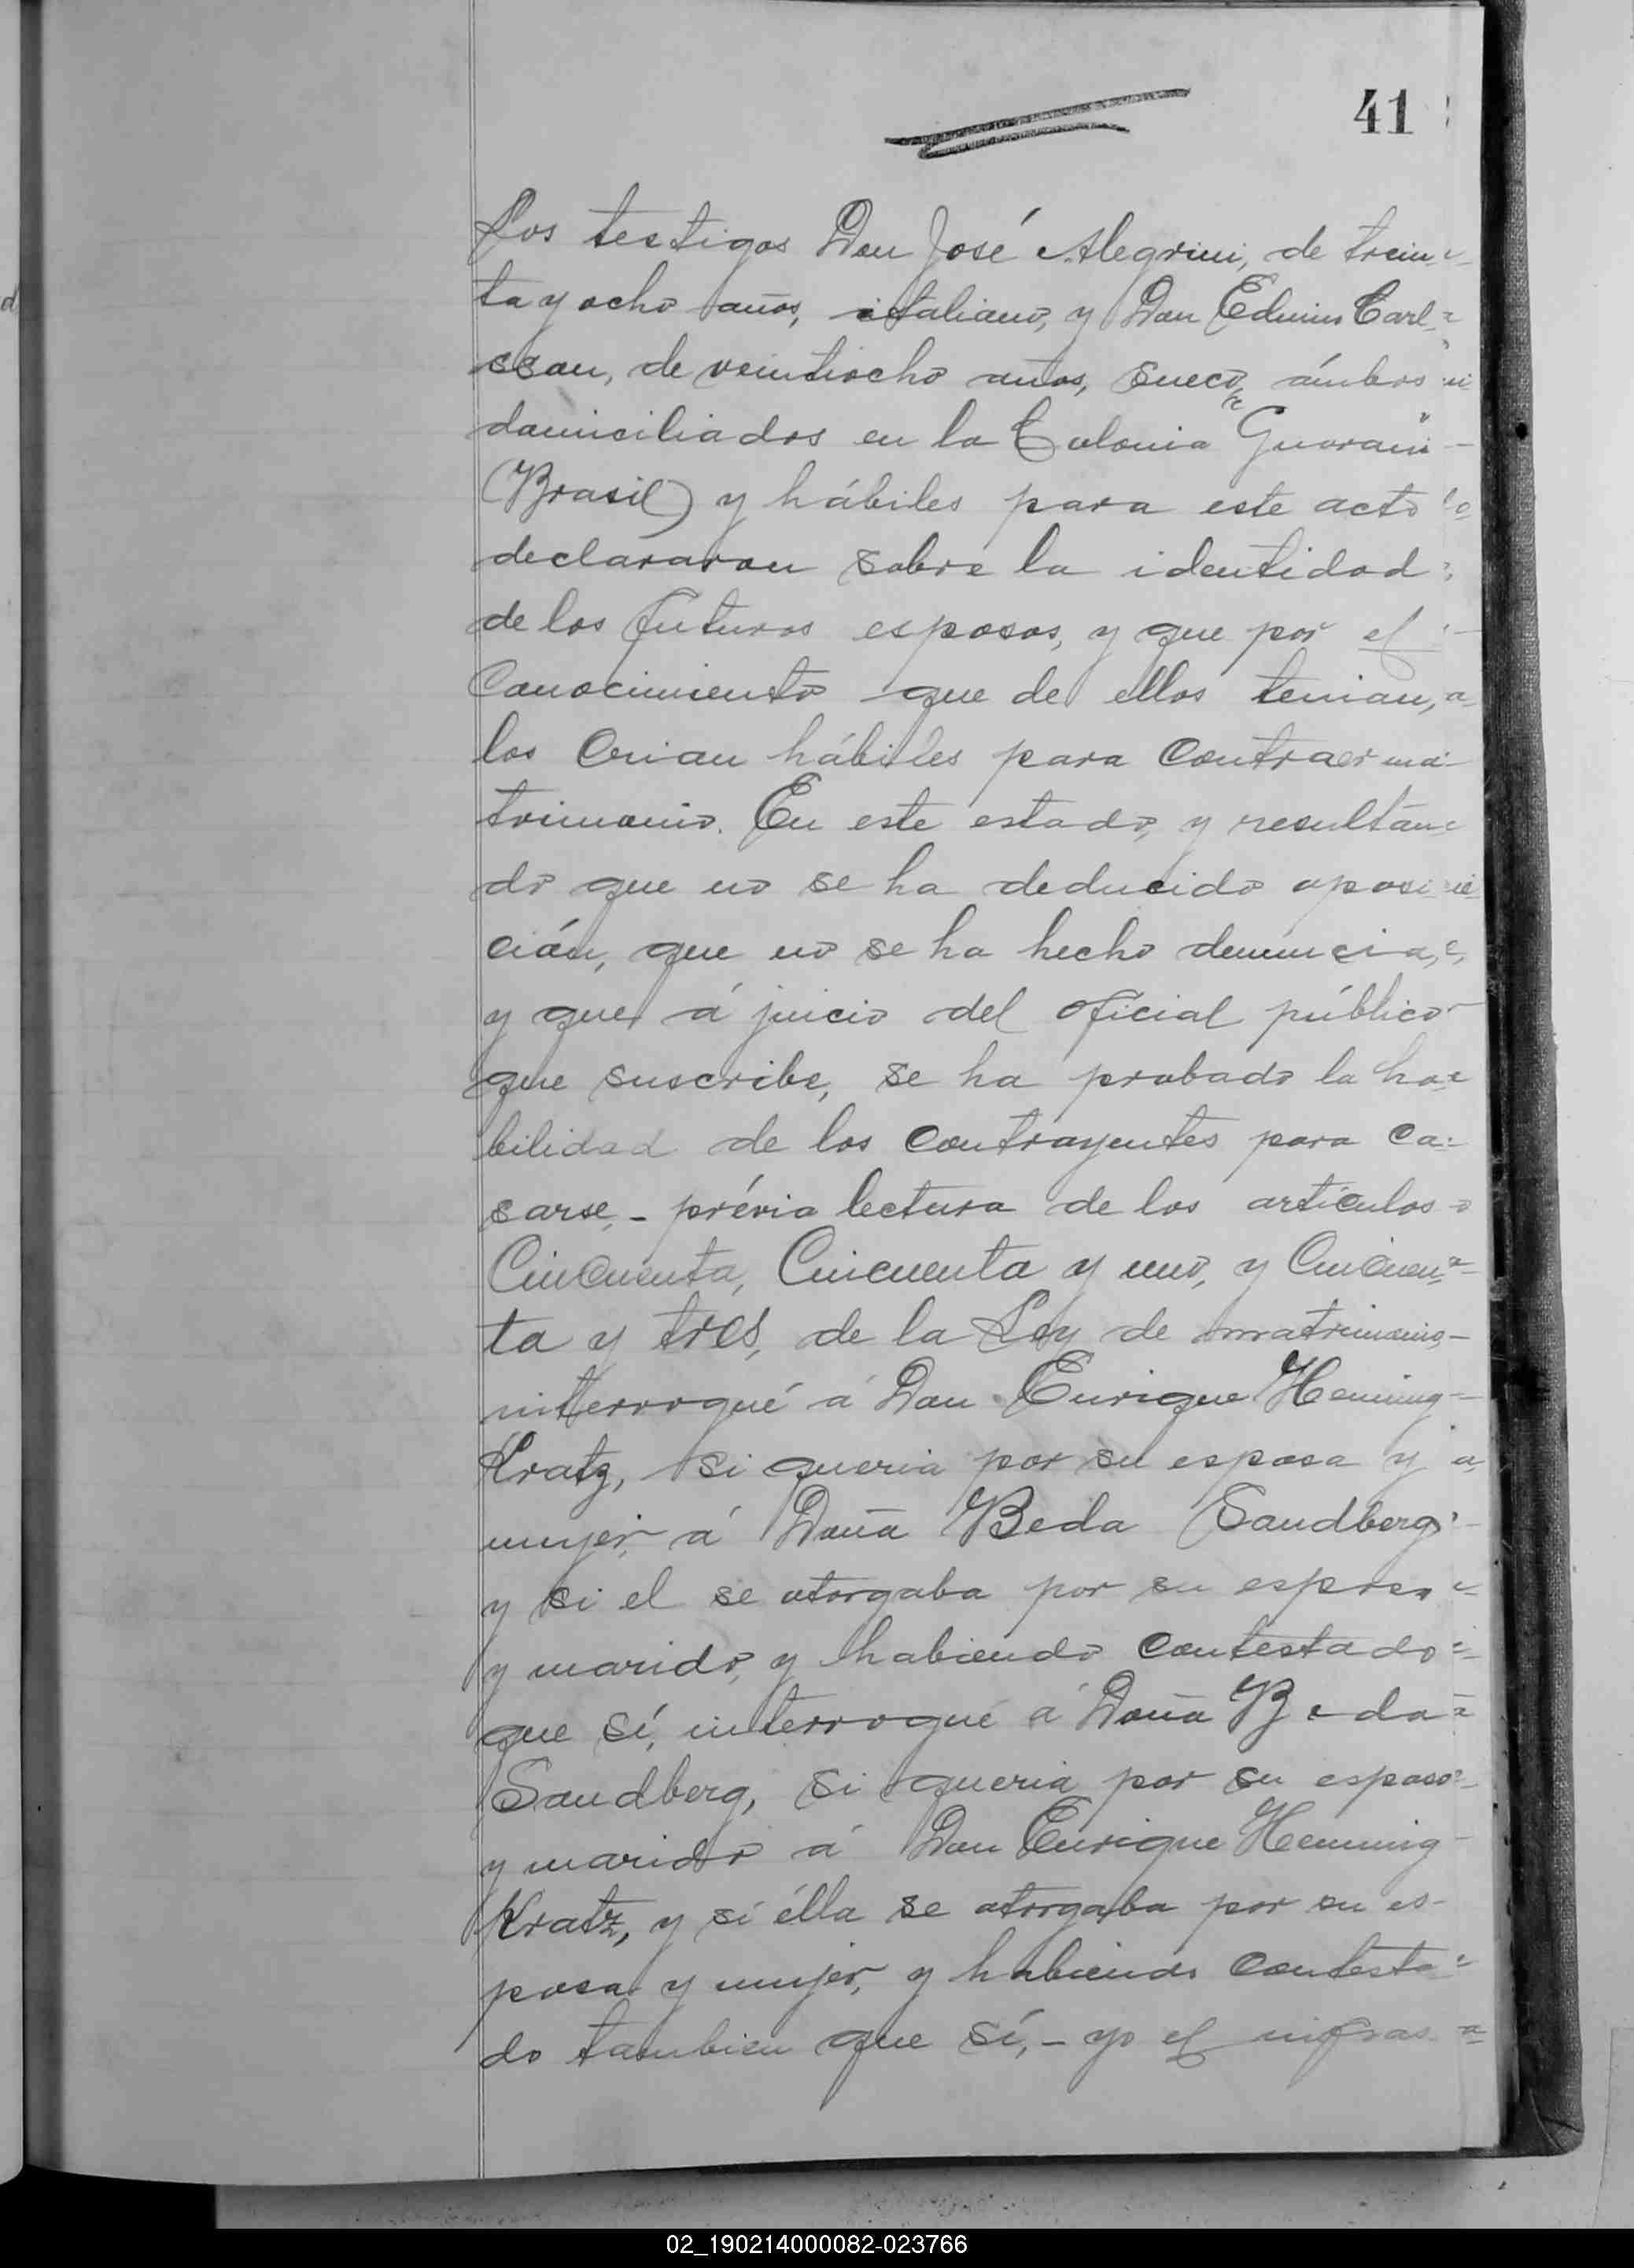 41
Los testigos Don José Alegrini, de trein=
ta y ocho años, italiano, y Don Edwin Carl=
sson, de veintiocho años, sueco, ámbos
domiciliados en la Colonia "Guaraní"
(Brasil) y hábiles para este acto
declararon sobre la identidad
de los futuros esposos, y que por el
conocimiento que de ellos tenian,
los creian hábiles para contraer ma-
trimonio. En este estado, y resultan=
do que no se ha deducido oposi=
ción, que no se ha hecho denuncia,
y que á juicio del oficial público
que suscribe, se ha probado la ha=
bilidad de los contrayentes para ca=
sarse, - prévia lectura de los artículos
Cincuenta, Cincuenta y uno, y Cincuen=
ta y tres, de la Ley de matrimonio-
interrogué á Don Enrique Henning
Kratz, si queria por su esposa y
mujer á Doña Beda Sandberg
y si el se otorgaba por su esposo
y marido, y habiendo contestado
que sí, interrogué á Doña Beda
Sandberg, si queria por su esposo
y marido á Don Enrique Henning
Kratz, y si élla se otorgaba por su es-
posa y mujer, y habiendo contesta=
do tambien que sí, - yo el infras=
02_190214000082-023766